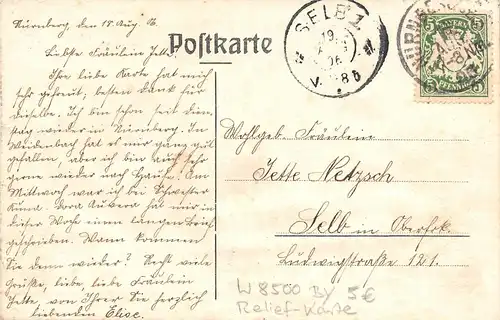 Nürnberg den 18 Aug 06.
Liebste Fräulein Jette,
Ihre liebe Karte hat mich
sehr gefreut, besten Dank für
dieselbe. Ich bin schon seit Diens-
tag wieder in Nürnberg. In
Weidenbach hat es mir ganz gut
gefallen, aber ich bin auch sehr
gerne wieder nach Hause. Am
Mittwoch war ich bei Schwester
Kuna. Dora Auvera hat mir in
dieser Woche einen langen Brief
geschrieben. Wann kommen
Sie denn wieder? Recht viele
Grüße, liebe, liebe Fräulein
Jette, von Ihrer Sie herzlich
liebenden Elise.
Postkarte
SELB 1
19
AUG
06
V. 8
BAYERN
5 5
PFENNIG
Wohlgeb. Fräulein
Jette Netzsch
Selb in Oberfrk.
Ludwigstraße 121.
W 8500 BY 5€
Relief-Karte